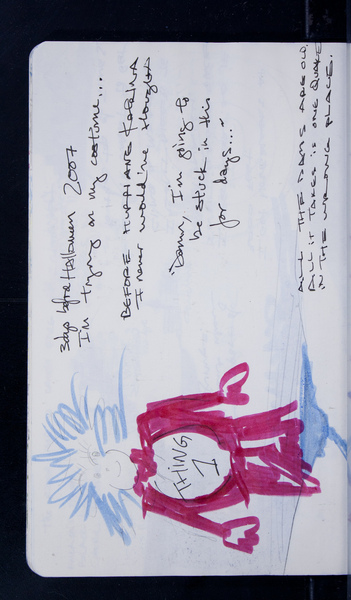 3 days before Halloween 2007
I'm trying on my costume...
BEFORE HURRICANE KATRINA
I never would've thought
"Damn, I'm going to
be stuck in this
for days..."
ALL THE DAMS ARE OLD,
ALL IT TAKES IS ONE QUAKE
IN THE WRONG PLACE.
THING
1